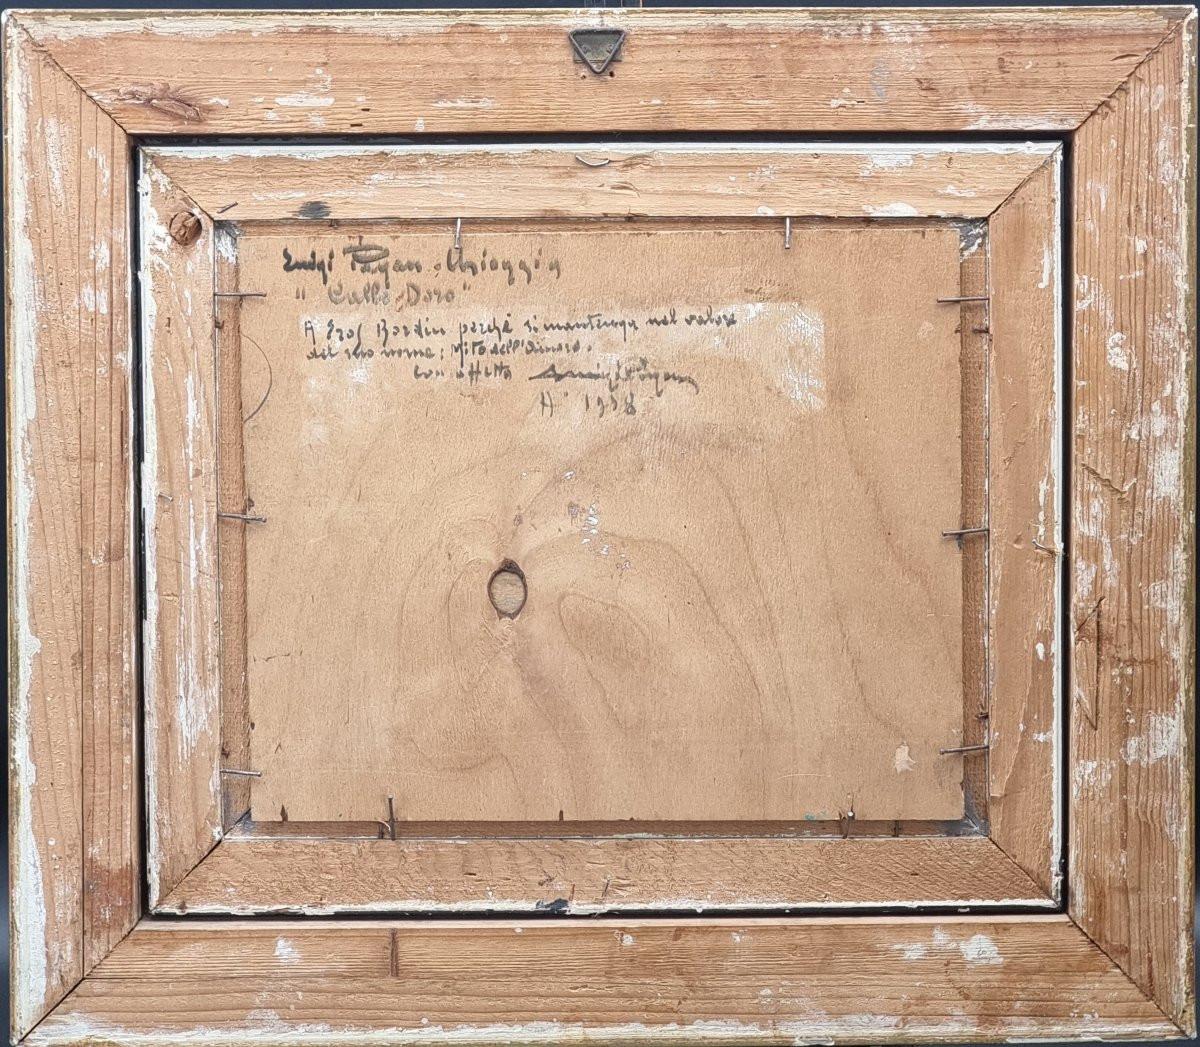 Luigi Pagan - Chioggia
"Calle Doro"
A Eros Bordin perché si mantenga nel valore
del suo nome: Mito dell'Amore.
con affetto Luigi Pagan
A° 1978